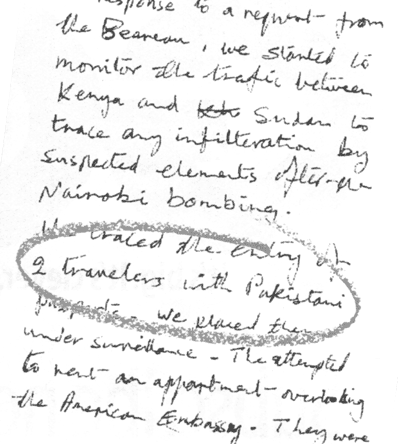 response to a request from
the Beareau, we started to
monitor the trafic between
Kenya and Sudan to
trace any infilteration by
suspected elements after the
Nairobi bombing.
We traced the entry of
2 travelers with Pakistani
passports. we placed them
under surveillance - The attempted
to rent an appartment overlooking
the American Embassy. They were